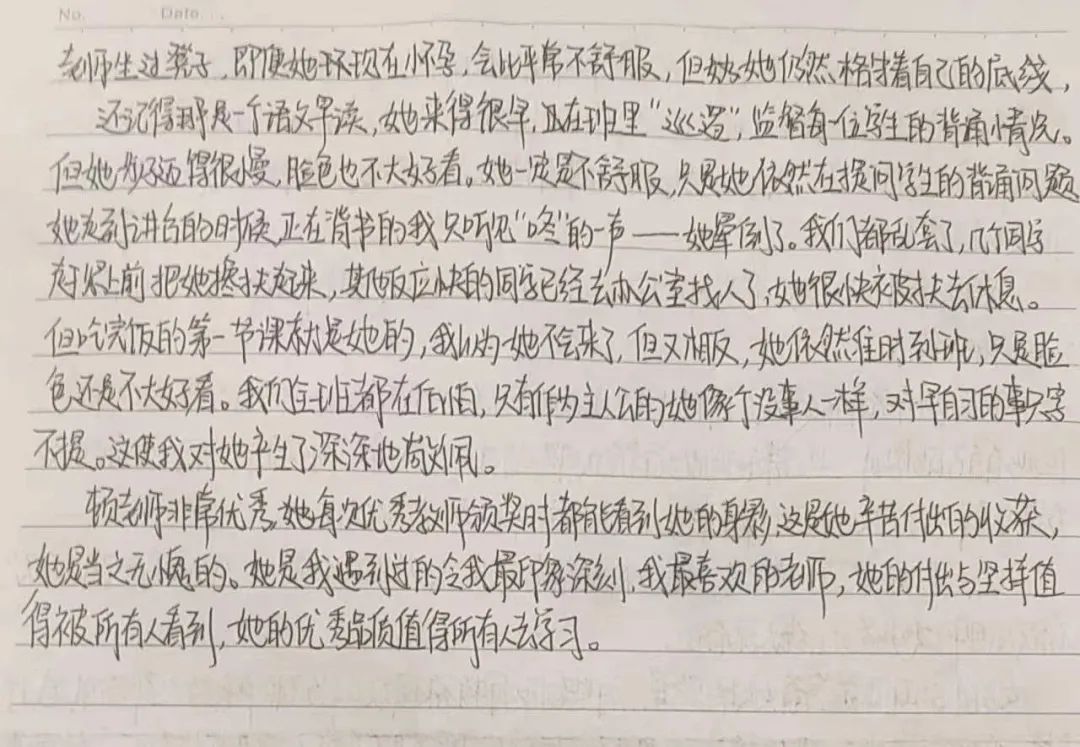 No.    Date
老师生过凳子,即便她现在怀孕,会比平常不舒服,但她仍然格守着自己的底线,
还记得那是一个语文早读,她来得很早,正在班里“巡逻”,监督每一位学生的背诵情况。
但她走得很慢,脸色也不大好看。她一定是不舒服,只是她依然在提问学生的背诵问题
她走到讲台的时候,正在背书的我只听见“咚”的一声——她晕倒了。我们都乱套了,几个同学
赶紧上前把她搀扶起来,其他反应快的同学已经去办公室找人了,她很快被扶去休息。
但吃完饭的第一节课就是她的,我以为她不会来了,但又相反,她依然准时到班,只是脸
色还是不大好看。我们全班都在后怕,只有作为主人公的她像个没事人一样,对早自习的事只字
不提。这使我对她产生了深深地敬佩。
顿老师非常优秀,她每次优秀教师颁奖时都能看到她的身影,这是她辛苦付出的收获,
她是当之无愧的。她是我遇到过的令我最印象深刻,我最喜欢的老师,她的付出与坚持值
得被所有人看到,她的优秀品质值得所有人去学习。